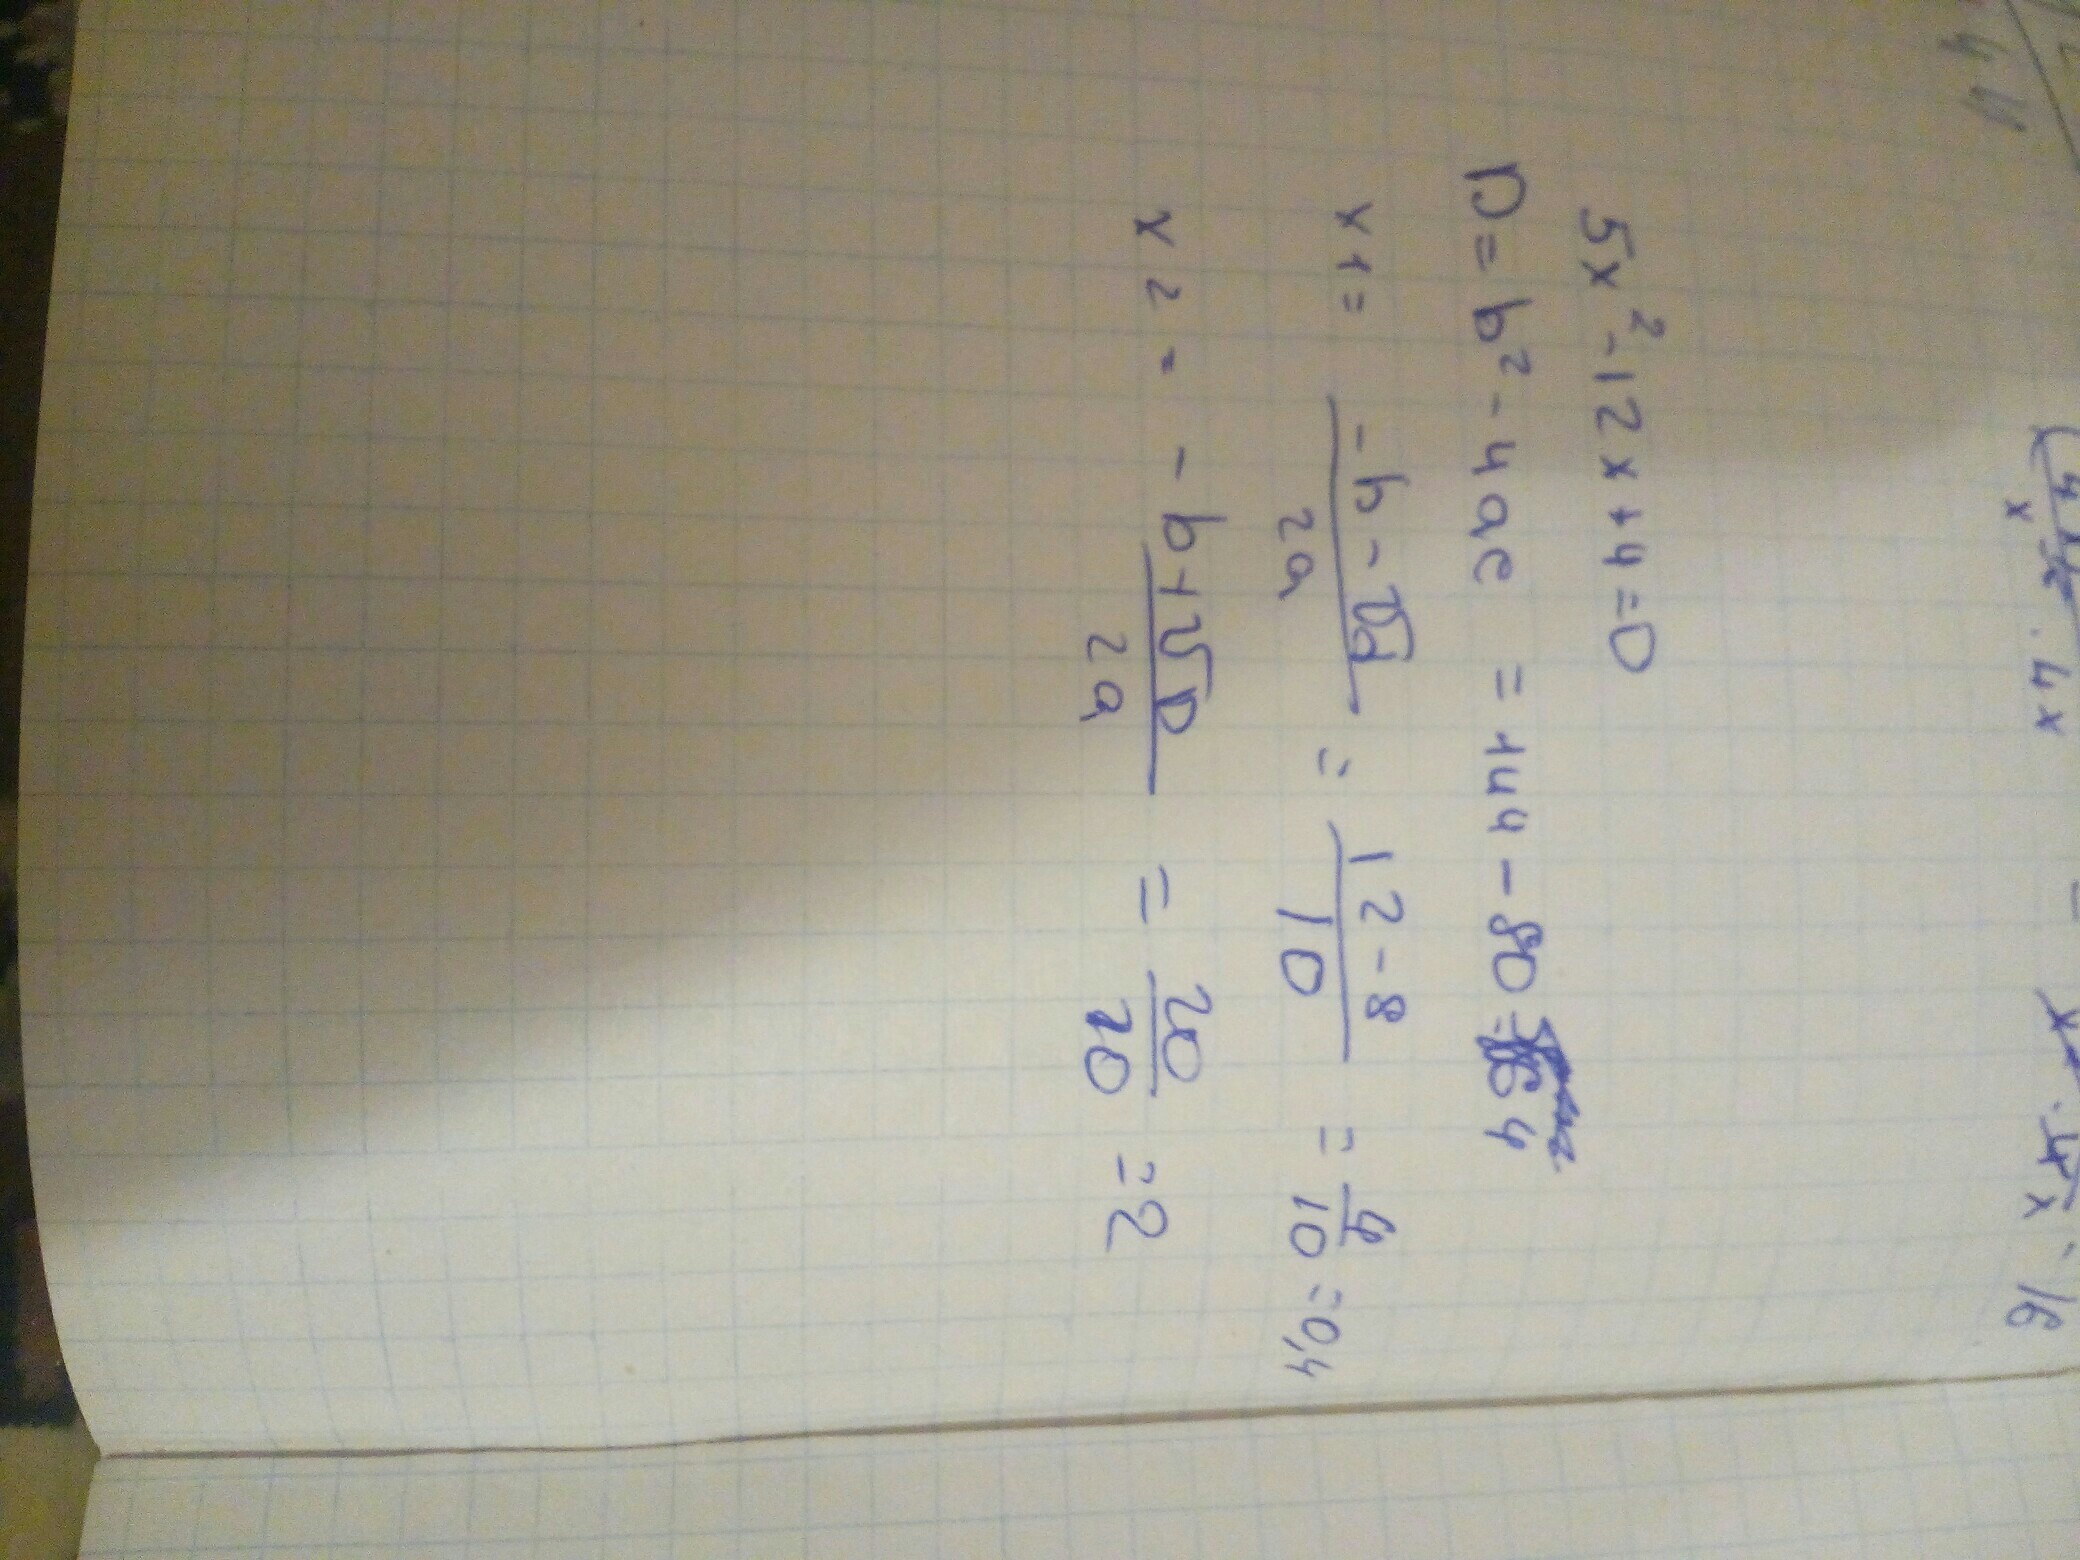 5x² - 12x + 4 = 0
D = b² - 4ac = 144 - 80 = 64
x1 = (-b - √d)/(2a) = (12 - 8)/10 = 4/10 = 0,4
x2 = (-b + √D)/(2a) = 20/10 = 2